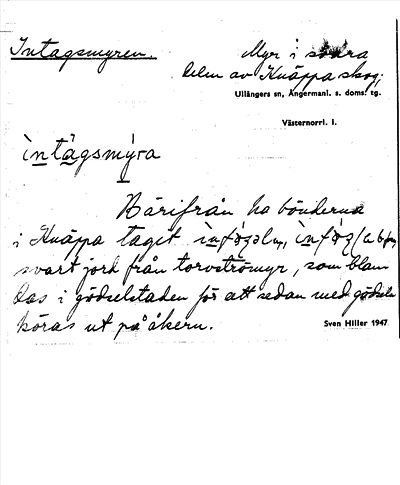 Intagsmyren.
Myr i södra
delen av Knäppa skog;
Ullångers sn, Ångermanl. s. doms. tg.
Västernorrl. l.
ìntàgsmýra
Bärifrån ha bönderna
i Knäppa taget
svart jord från torvströmyr, som blan-
das i gödselstaden för att sedan med gödseln
köras ut på åkern.
Sven Hiller 1947